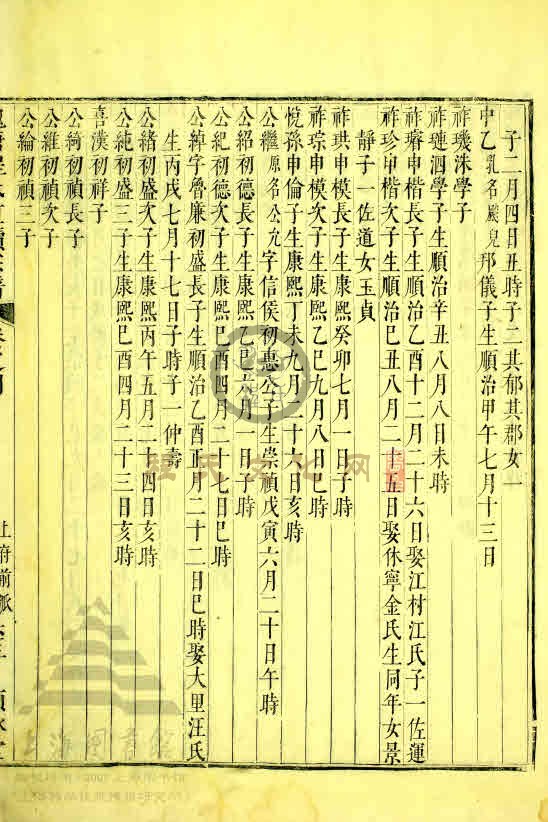 子二月四日丑時子二其郁其郡女一
申乙乳名騘兒邦儀子生順治甲午七月十三日
祚璣洙學子
祚璉泗學子生順治辛丑八月八日未時
祚璿申楷長子生順治乙酉十二月二十六日娶江村江氏子一佐運
祚珍申楷次子生順治己丑八月二十五日娶休寧金氏生同年女景
靜子一佐道女玉貞
祚珙申模長子生康熙癸卯七月一日子時
祚琮申模次子生康熙乙巳九月八日巳時
悅孫申倫子生康熙丁未九月二十六日亥時
公繼原名公允字信侯初惠公子生崇禎戊寅六月二十日午時
公紹初德長子生康熙乙巳六月一日子時
公紀初德次子生康熙己酉四月二十七日巳時
公綽字魯廉初盛長子生順治乙酉正月二十二日巳時娶大里汪氏
生丙戌七月十七日子時子一仲壽
公緒初盛次子生康熙丙午五月二十四日亥時
公純初盛三子生康熙己酉四月二十三日亥時
喜漢初祥子
公綺初禎長子
公維初禎次子
公綸初禎三子
上海圖書館